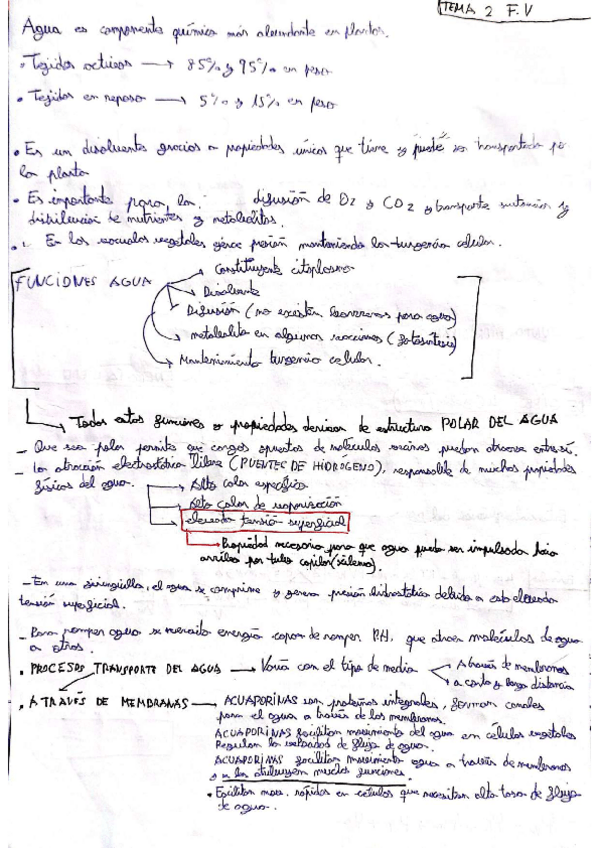 TEMA 2 F.V
Agua es componente químico más abundante en plantas.
• Tejidos activos → 85% y 95% en peso
• Tejidos en reposo → 5% y 15% en peso
• Es un disolvente gracias a propiedades únicas que tiene y puede ser transportada por
la planta
• Es importante para la: difusión de O2 y CO2 y transporte sustancias y
distribución de nutrientes y metabolitos.
• En las vacuolas vegetales ejerce presión manteniendo la turgencia celular.
FUNCIONES AGUA
→ Constituyente citoplasma
→ Disolvente
Difusión (no existen barreras para agua)
→ metabolito en algunas reacciones (fotosíntesis)
→ Mantenimiento turgencia celular.
→ Todas estas funciones o propiedades derivan de estructura POLAR DEL AGUA
- Que sea polar permite que cargas opuestas de moléculas vecinas puedan atraerse entre sí.
- La atracción electrostática (PUENTES DE HIDRÓGENO), responsable de muchas propiedades
físicas del agua.
→ Alto calor específico
→ Alto calor de vaporización
→ elevada tensión superficial
→ Propiedad necesaria para que agua pueda ser impulsada hacia
arriba por tubos capilar (xilema).
- En una jeringuilla, el agua se comprime y genera presión hidrostática debido a esta elevada
tensión superficial.
- Para romper agua se necesita energía capaz de romper PH, que atraen moléculas de agua
a otras.
• PROCESOS TRANSPORTE DEL AGUA → Varía con el tipo de media
→ A través de membranas
→ a corta y larga distancia
• A TRAVÉS DE MEMBRANAS → ACUAPORINAS son proteínas integrales, forman canales
para el agua a través de las membranas.
ACUAPORINAS facilitan movimiento del agua en células vegetales
Regulan la velocidad de flujo de agua.
ACUAPORINAS facilitan movimiento agua a través de membranas
y se les atribuyen muchas funciones.
• Facilitan mov. rápidos en células que necesitan alta tasa de flujo
de agua.